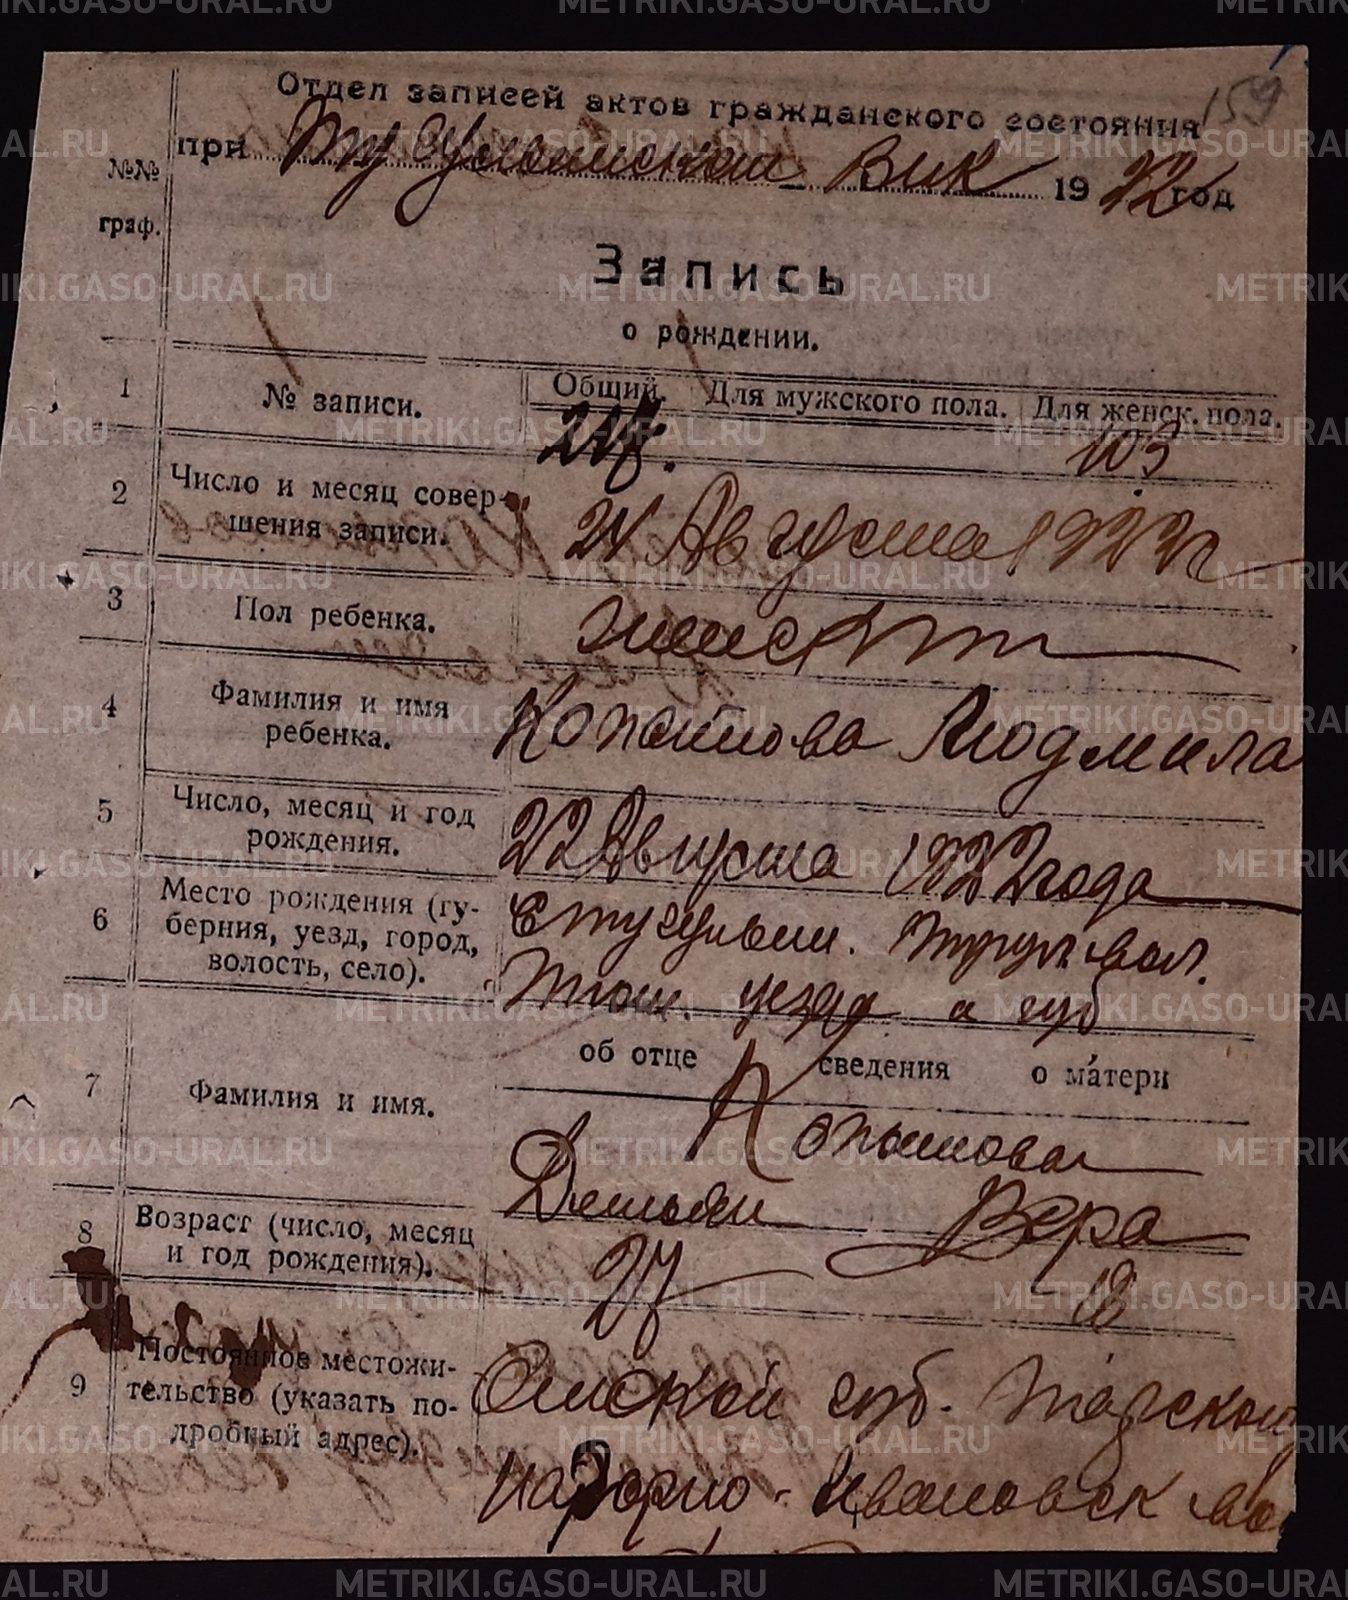 159
Отдел записей актов гражданского состояния
при Тугулымском Вик 1922 год
№№
граф.
Запись
о рождении.
1 № записи. Общий. Для мужского пола. Для женск. пола.
217. 103
2 Число и месяц совер-
шения записи. 24 Августа 1922 г
3 Пол ребенка. женск
4 Фамилия и имя
ребенка. Людмила
5 Число, месяц и год
рождения. 22 Августа 1922 года
6 Место рождения (гу-
берния, уезд, город,
волость, село). с Тугулым. Тугул. вол.
Тюм. уезда и губ
об отце сведения о матери
7 Фамилия и имя.
Вера
8 Возраст (число, месяц
и год рождения). 27 18
9 Постоянное местожи-
тельство (указать по-
дробный адрес). Омской губ. Тарского
Ивановск
METRIKI.GASO-URAL.RU